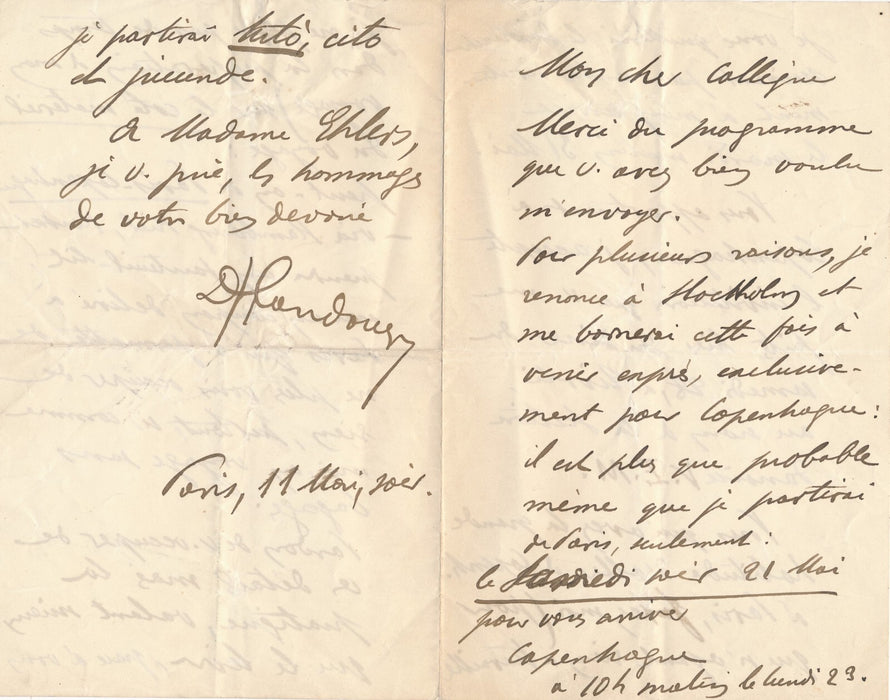 Mon cher Collègue
Merci du programme
que v. avez bien voulu
m'envoyer.
Pour plusieurs raisons, je
renonce à Stockholm et
me bornerai cette fois à
venir exprès, exclusive-
ment pour Copenhague :
il est plus que probable
même que je partirai
de Paris, seulement :
le Samedi soir 21 Mai
pour vous arriver
Copenhague
à 10h matin, le lundi 23.
je partirai tutò, cito
et jucunde.
A Madame Ehlers,
je v. prie, les hommages
de votre bien dévoué
Landouzy
Paris, 11 Mai, soir.